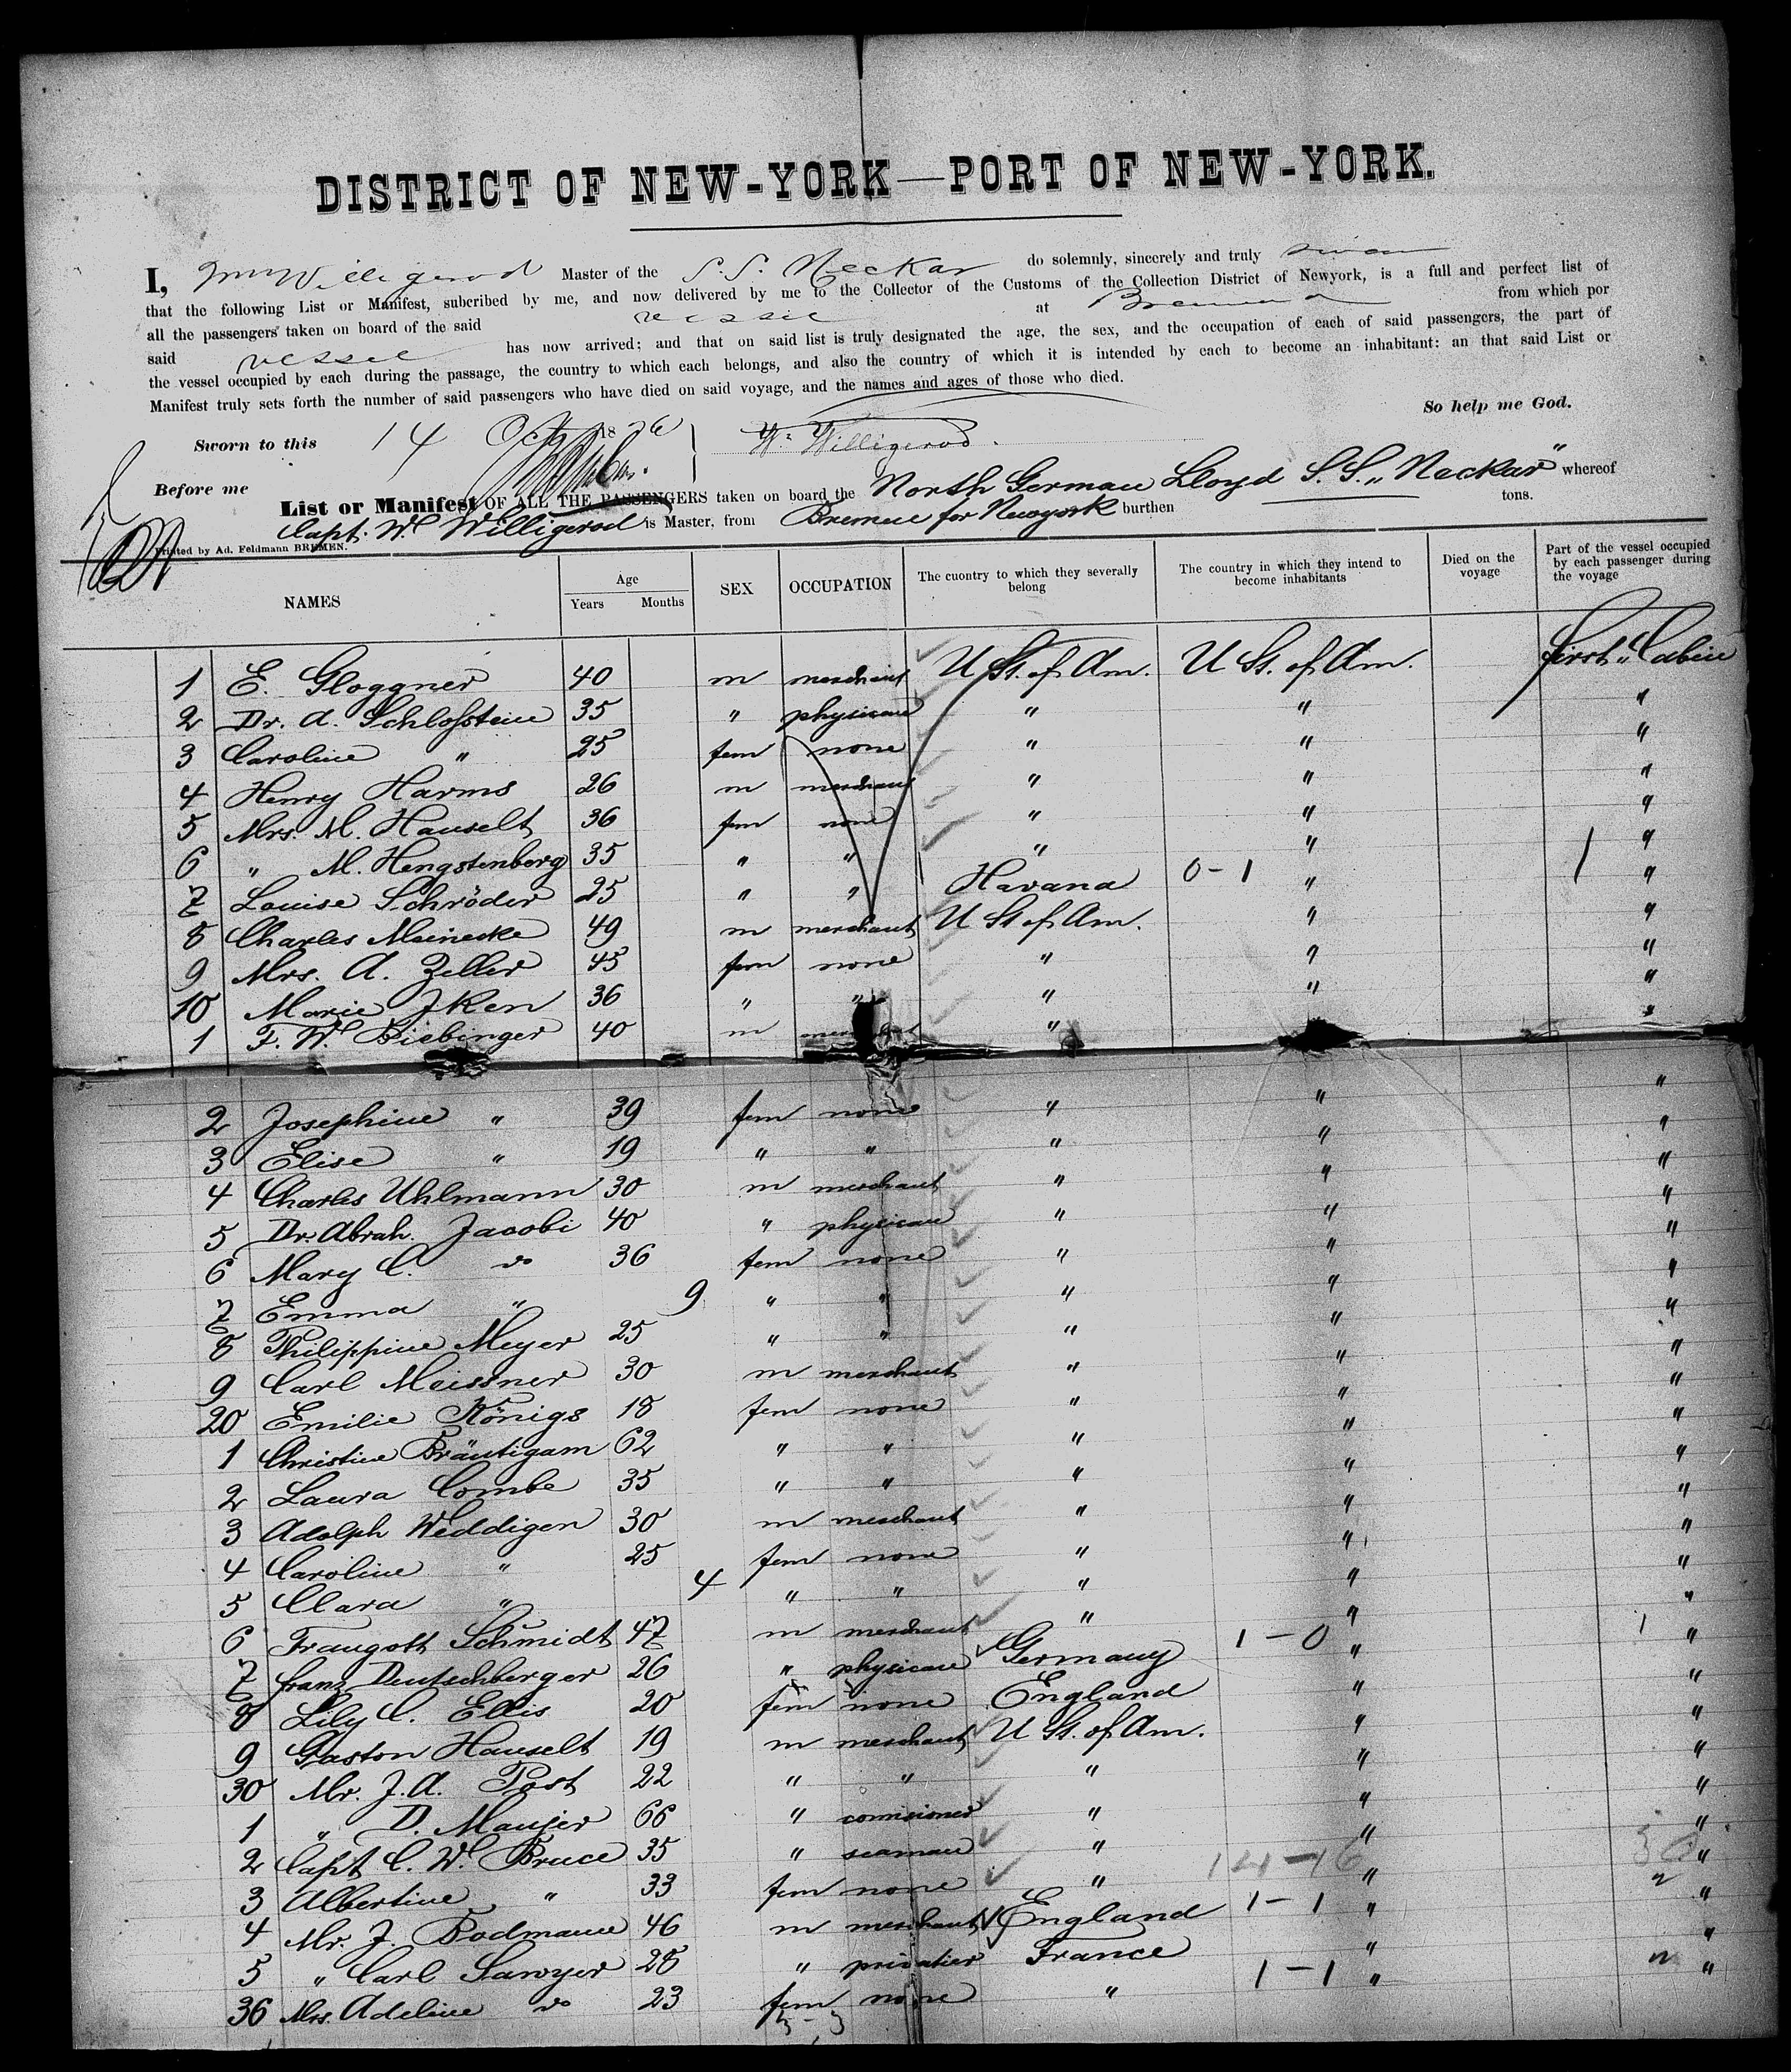 DISTRICT OF NEW-YORK—PORT OF NEW-YORK.
I, Wm Willigerod Master of the S.S. Neckar do solemnly, sincerely and truly swear
that the following List or Manifest, subcribed by me, and now delivered by me to the Collector of the Customs of the Collection District of Newyork, is a full and perfect list of
all the passengers taken on board of the said vessel at Bremen from which por
said vessel has now arrived; and that on said list is truly designated the age, the sex, and the occupation of each of said passengers, the part of
the vessel occupied by each during the passage, the country to which each belongs, and also the country of which it is intended by each to become an inhabitant: an that said List or
Manifest truly sets forth the number of said passengers who have died on said voyage, and the names and ages of those who died.
So help me God.
Sworn to this 14 Oct 1876 Wm Willigerod.
Before me
List or Manifest OF ALL THE PASSENGERS taken on board the North German Lloyd S.S. „Neckar" whereof
Capt. Wm Willigerod is Master, from Bremen for Newyork burthen tons.
Printed by Ad. Feldmann BREMEN.
NAMES Age Years Months SEX OCCUPATION The cuontry to which they severally belong The country in which they intend to become inhabitants Died on the voyage Part of the vessel occupied by each passenger during the voyage
1 E. Gloggner 40 m merchant U St. of Am. U St. of Am. first Cabin
2 Dr. A. Schloſstein 35 " physician " " "
3 Caroline " 25 fem none " " "
4 Henry Harms 26 m merchant " " "
5 Mrs. M. Hauselt 36 fem none " " "
6 " M. Hengstenberg 35 " " " " "
7 Louise Schröder 25 " " Havana 0-1 " 1 "
8 Charles Meinecke 49 m merchant U St of Am. " "
9 Mrs. A. Zeller 45 fem none " " "
10 Marie Jken 36 " " " " "
1 F. W. Biebinger 40 m merchant " "
2 Josephine " 39 fem none " " "
3 Elise " 19 " " " " "
4 Charles Uhlmann 30 m merchant " " "
5 Dr. Abrah. Jacobi 40 " physician " " "
6 Mary C. do 36 fem none " " "
7 Emma " 9 " " " " "
8 Philippine Meyer 25 " " " " "
9 Carl Meissner 30 m merchant " " "
20 Emilie Königs 18 fem none " " "
1 Christine Bräutigam 62 " " " " "
2 Laura Combe 35 " " " " "
3 Adolph Weddigen 30 m merchant " " "
4 Caroline " 25 fem none " " "
5 Clara " 4 " " " " "
6 Traugott Schmidt 47 m merchant " " "
7 franz Deutschberger 26 " physician Germany 1-0 " 1 "
8 Lily C. Ellis 20 fem none England " "
9 Gaston Hauselt 19 m merchant U St. of Am. " "
30 Mr. J. A. Post 22 " " " " "
1 " D. Maujer 66 " comisioner " " "
2 Capt C. W. Bruce 35 " seaman " " "
3 Albertine " 33 fem none " 14-16 " "
4 Mr. J. Bodmann 46 m merchant England 1-1 " 2 "
5 " Carl Sawyer 28 " privatier France " "
36 Mrs. Adeline do 23 fem none " 1-1 " "
3-3